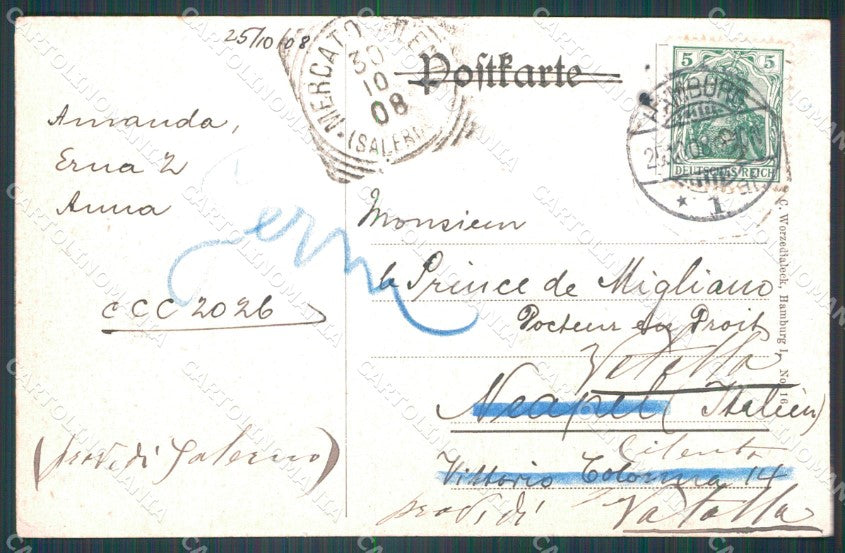 25/10/08
MERCATO
30
10
08
(SALERNO
Postkarte
5 5
DEUTSCHES REICH
HAMBURG
25.10.08
* 1
Amanda,
Erna 2
Anna
CCC 2026
Monsieur
le Prince de Migliano
Docteur en Droit
Vatolla
Neapel (Italien)
Cilento
Vittorio Colonna 14
prov. di Vatolla
(prov. di Salerno)
C. Worzedialeck, Hamburg 1. No. 16
CARTOLINOMANIA